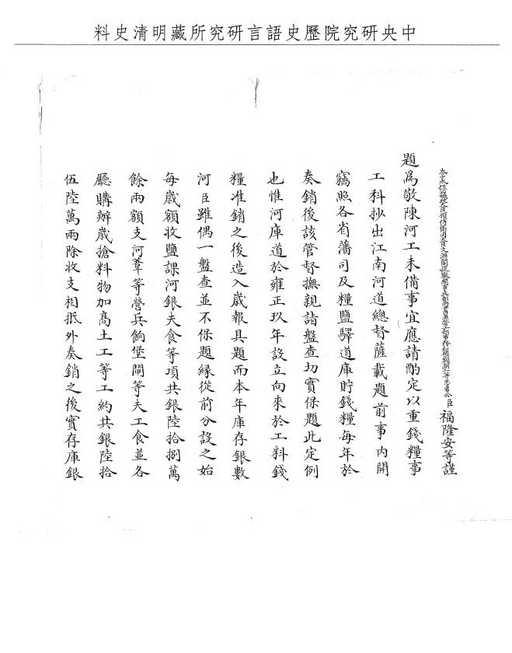 中央研究院歷史語言研究所藏明清史料
臣福隆安等謹
題為敬陳河工未備事宜應請酌定以重錢糧事
工科抄出江南河道總督薩載題前事內開
竊照各省藩司及糧鹽驛道庫貯錢糧每年於
奏銷後該管督撫親詣盤查切實保題此定例
也惟河庫道於雍正玖年設立向來於工料錢
糧准銷之後造入歲報具題而本年庫存銀數
河臣雖偶一盤查並不保題緣從前分設之始
每歲額收鹽課河銀夫食等項共銀陸拾捌萬
餘兩額支河葦等營兵餉堡閘等夫工食並各
廳購辦歲搶料物加高土工等工約共銀陸拾
伍陸萬兩除收支相抵外奏銷之後實存庫銀